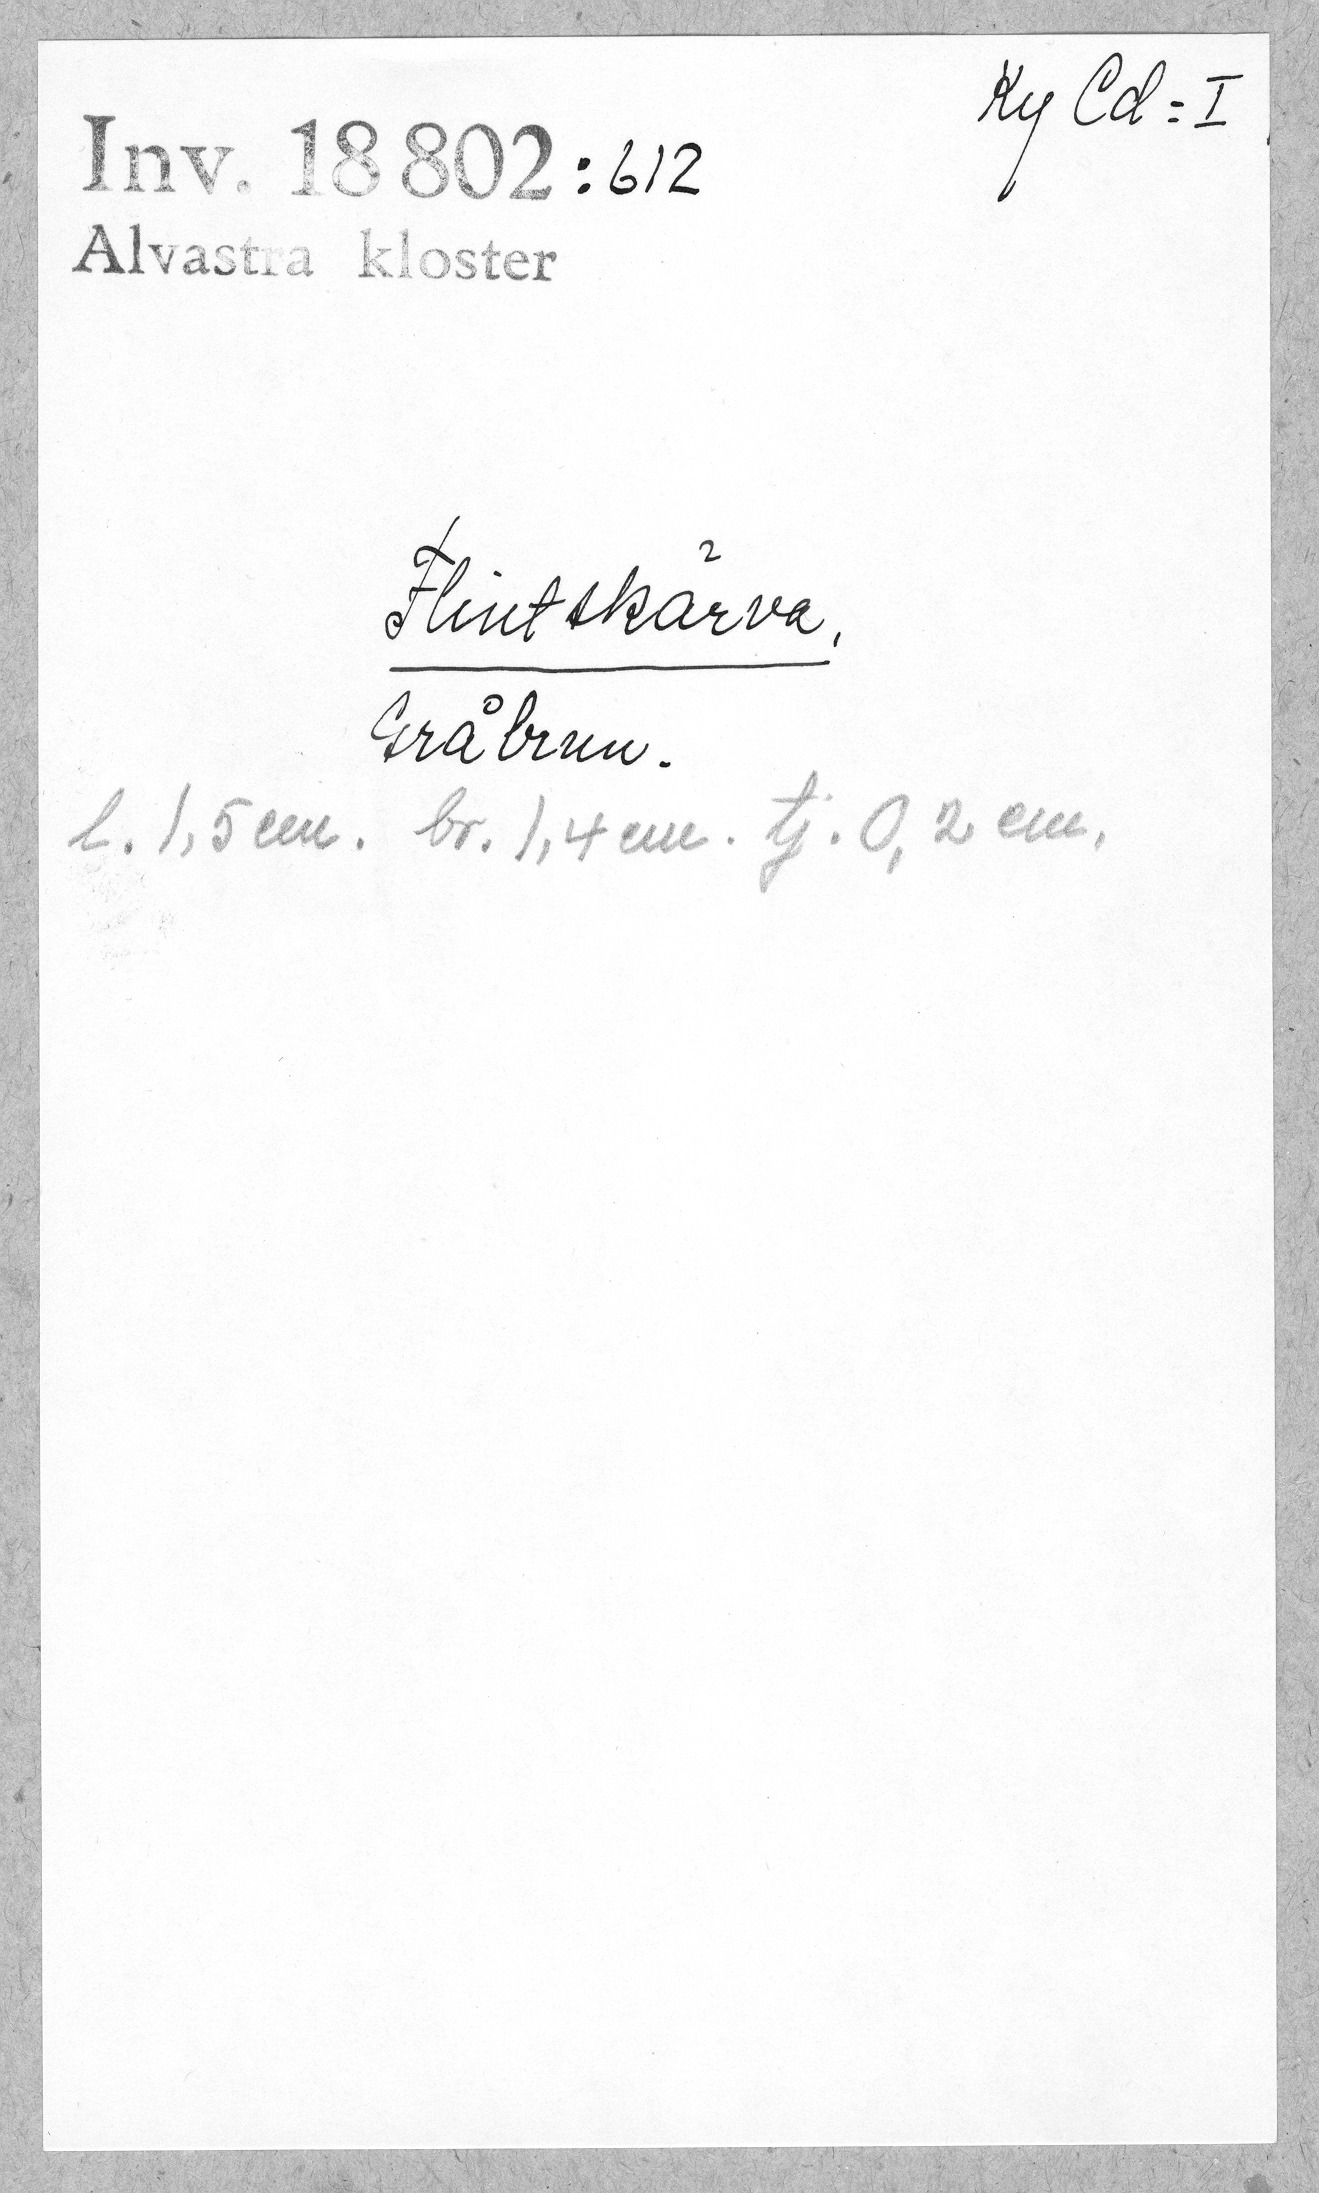 Ky Cd = I
Inv. 18 802 : 612
Alvastra kloster
Flintskärva,
Gråbrun.
l. 1,5 cm. br. 1,4 cm. tj. 0,2 cm.